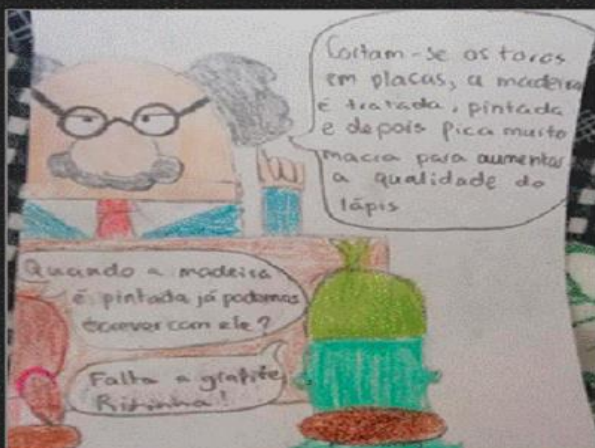 Cortam-se os toros
em placas, a madeira
é tratada, pintada
e depois fica muito
macia para aumentar
a qualidade do
lápis
Quando a madeira
é pintada já podemos
escrever com ele?
Falta a grafite
Ritinha!